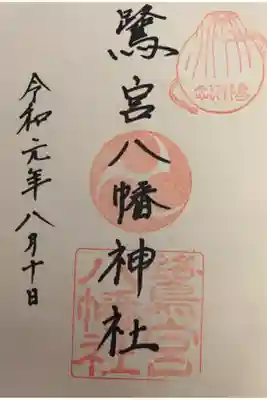 鷺宮八幡神社
令和元年八月十日
鷺宮
八幡社